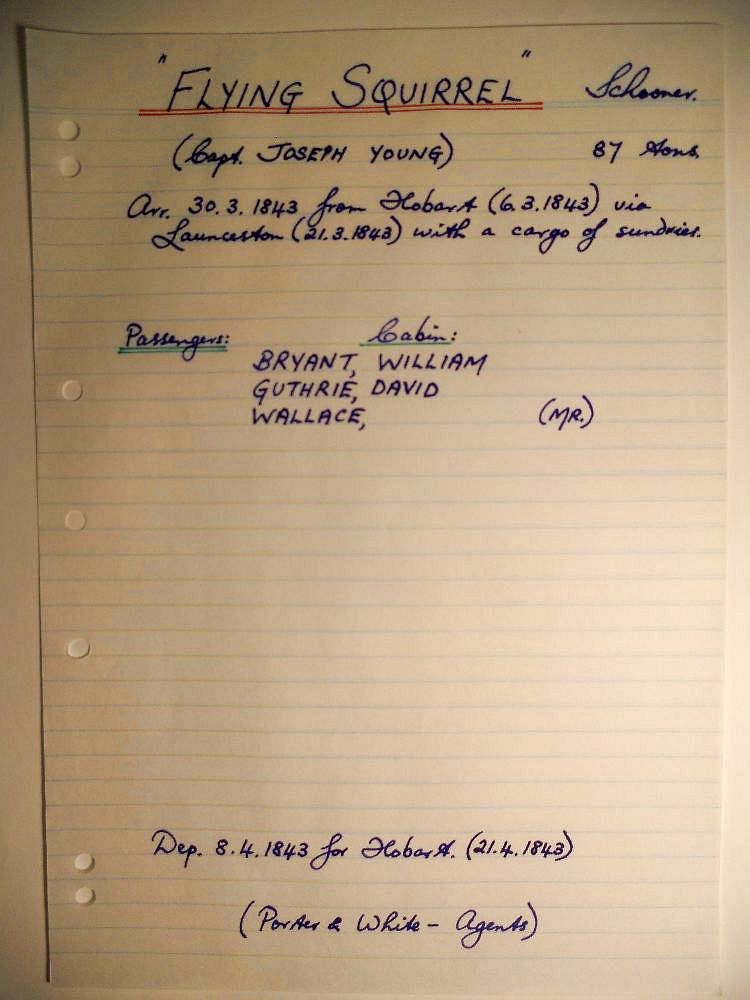 "FLYING SQUIRREL" Schooner.
(Capt. JOSEPH YOUNG) 87 tons.
Arr. 30.3.1843 from Hobart (6.3.1843) via
Launceston (21.3.1843) with a cargo of sundries.
Passengers: Cabin:
BRYANT, WILLIAM
GUTHRIE, DAVID
WALLACE, (MR.)
Dep. 8.4.1843 for Hobart. (21.4.1843)
(Porter & White - Agents)